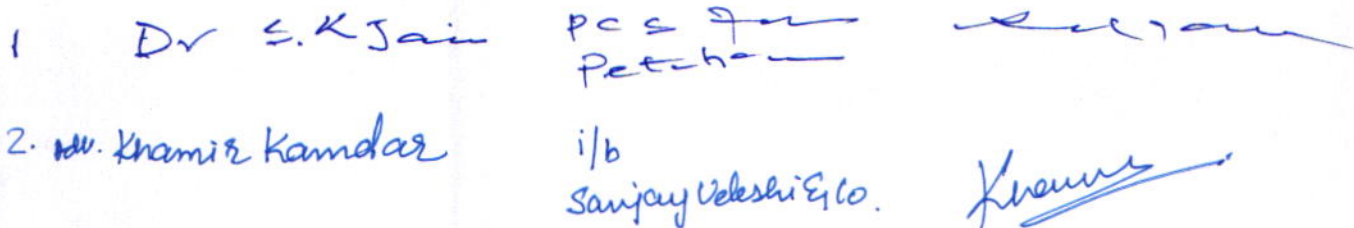 1 Dr S.K Jain PCS for
Petitioner
2. Adv. Khamir Kamdar i/b
Sanjay Udeshi & Co.